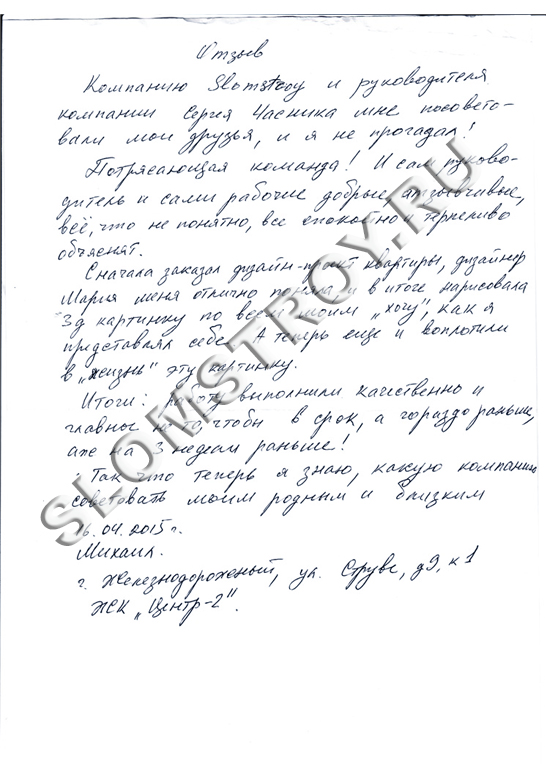 Отзыв
Компанию Slomstroy и руководителя
компании Сергия Часника мне посовето-
вали мои друзья, и я не прогадал!
Потрясающая команда! И сам руково-
дитель и сами рабочие добрые, отзывчивые,
всё, что не понятно, все спокойно и терпеливо
объяснят.
Сначала заказал дизайн-проект квартиры, дизайнер
Мария меня отлично поняла и в итоге нарисовала
3д картинку по всем моим „хочу", как я
представлял себе. А теперь еще и воплотили
в „жизнь" эту картинку.
Итоги: работу выполнили качественно и
главное не то, чтобы в срок, а гораздо раньше,
аже на 3 недели раньше!
Так что теперь я знаю, какую компанию
советовать моим родным и близким
16.04.2015 г.
Михаил.
г. Железнодорожный, ул. Струве, д9, к1
ЖК „Центр-2".
SLOMSTROY.RU